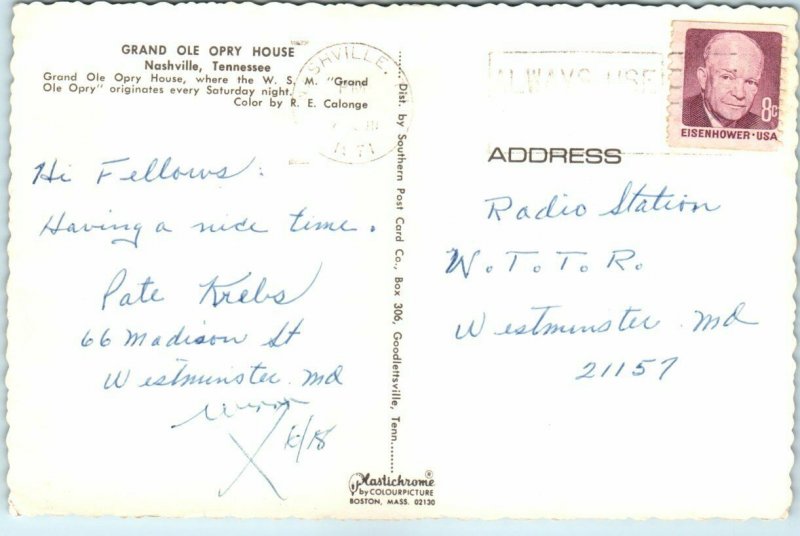 GRAND OLE OPRY HOUSE
Nashville, Tennessee
Grand Ole Opry House, where the W. S. M. "Grand
Ole Opry" originates every Saturday night.
Color by R. E. Calonge
Hi Fellows:
Having a nice time.
Pate Krebs
66 Madison St
Westminster Md
6/18
Dist. by Southern Post Card Co., Box 306, Goodlettsville, Tenn.
Plastichrome®
by COLOURPICTURE
BOSTON, MASS. 02130
NASHVILLE,
PM
ALWAYS USE
8c
EISENHOWER·USA
ADDRESS
Radio Station
W.T.T.R.
Westminster Md
21157